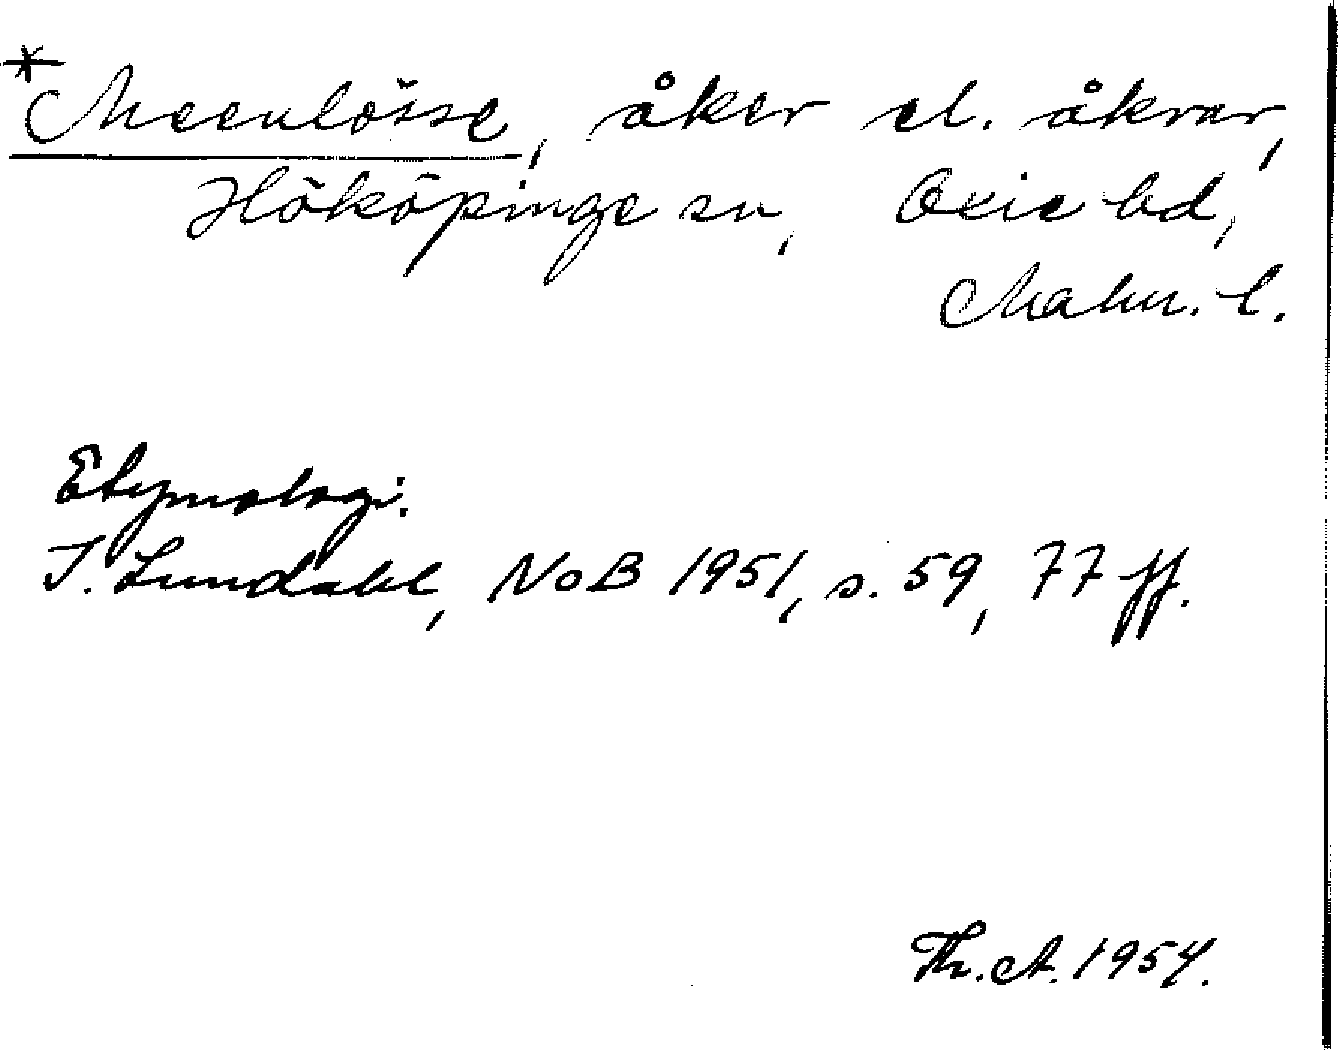 * Meenlösse, åker el. åkrar,
Hököpinge sn, Oxie hd,
Malm. l.
Etymologi.
I. Lundahl, NoB 1951, s. 59, 77 ff.
Th. A. 1954.